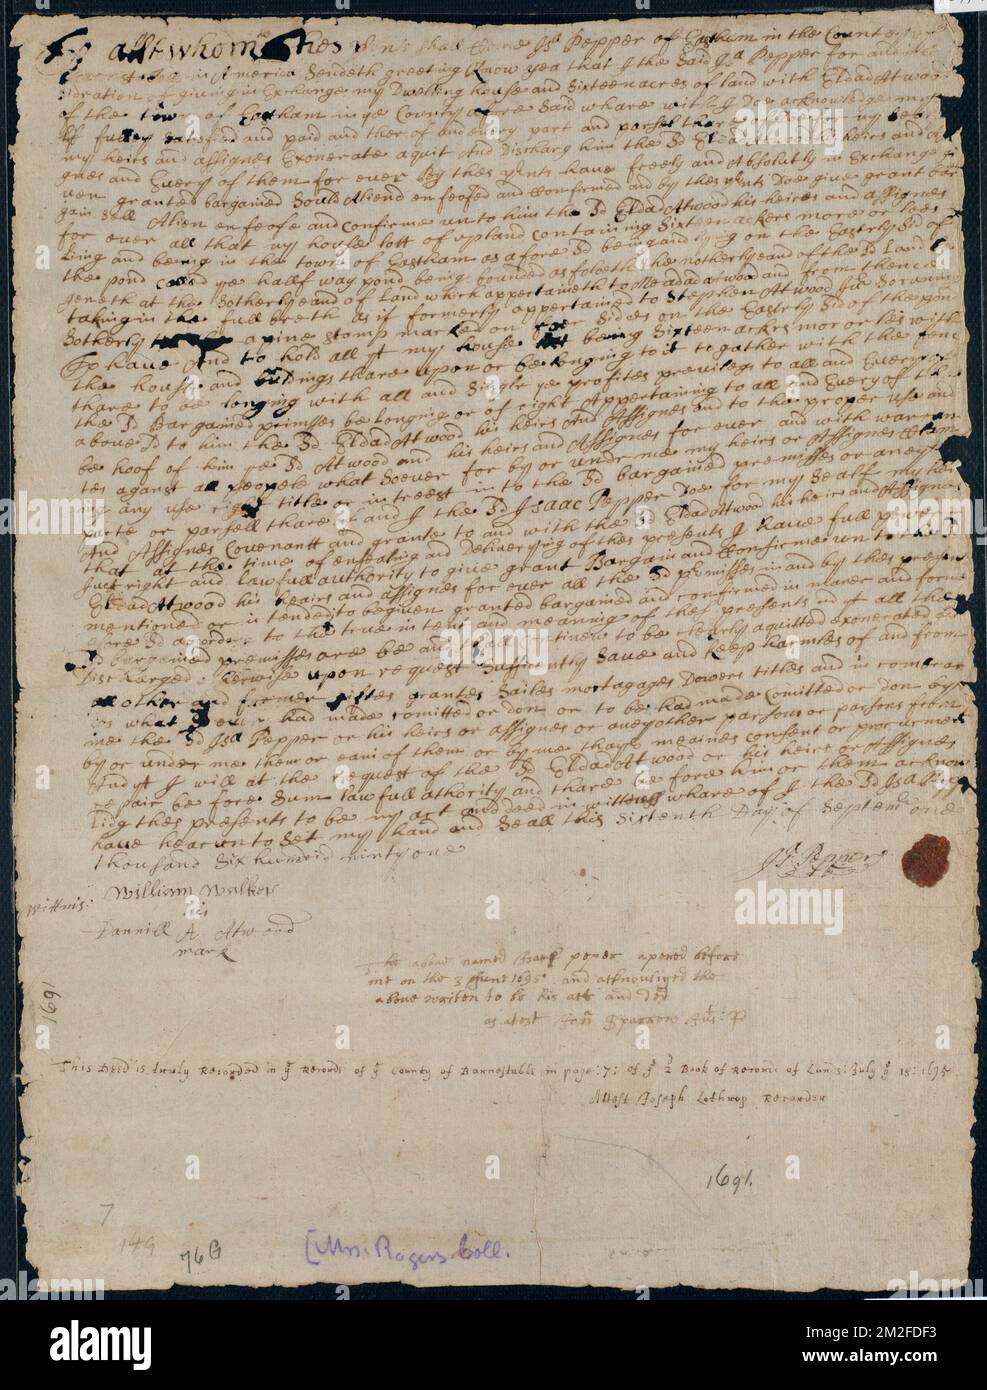 To all whom thes shall Come Isa Pepper of Eastham in the County of
in America Sendeth greeting Know yea that I the Said Isa Pepper for and in
sidration of giving in Exchange my Dwelling house and Sixteen acres of land with Eldad Atwood
of the town of Eastham in ye County afore Said whare with I Doe acknowledge my
self fulley satisfied and paid and ther of and every part and parsel thare of
my heirs and assignes Exonerate aquit And Discharg him the sd Eldad his heirs and
gnes and Every of them for ever By thes have freely and Absolutly in Exchange gi
ven granted bargained Sould Aliend enfeofed and Confirmed and by thes Doe give grant bar
gain sell Alien enfeofe and confirme unto him the sd Eldad Atwood his heires and assignes
for ever all that my house lott of upland containing Sixteen ackers more or less
liing and being in the town of Eastham afore sd being and lying on the Easterly Sd of
the pond called ye half way pond being bounded as foloeth the notherly eand of the sd Land
geneth at the Sotherly eand of land which appertaineth to Meadad atwood and from thence
taking in the full breth as it formerly appertained to Stephen Atwood
Sotherly a pine stomp marked on four Sides on the Easterly Sd of the pond
To have And to hold all yt my house lott being Sixteen ackrs mor or les with
the house and buldings thare upon or be longing to it to gather with the fenc
thare to be longing with all and Single ye profites previlegs to all and Every
the sd Bargained primises be longing or of right Appertaining to all and Every of the
above sd to him the sd Eldad Atwood his heirs And Assignes and to the proper use and
be hoof of him ye sd Atwood and his heirs and Assignes for ever and with waren
tes aganst all people what soever for by or under me my heirs or Assignes
ing any use right title or intrest in to the sd bargained premisses or aney
parte or parsell thare of and I the sd Isaac Pepper Doe for my Sealf my hei
And Assignes Covenant and grante to and with the sd Eldad Atwood his heirs and Assignes
that at the time of ensealing and Delivery of thes presents I have full power
Just right and lawfull authority to give grant Bargain and Confirme unto the sd
Eldad Atwood his heairs and assignes for ever all the sd premisses in and by thes present
mentioned or intended to be given granted bargained and confirmed in maner and forme
afore sd according to the true intent and meaning of thes presents and yt all the
sd bargained premisses are be and shall continew to be clearly aquitted exonerated and
Discharged otherwise upon request Sufficiently Save and keep harmles of and from
all other and former giftes grantes Sailes mortagages Dowers titles and in comerar
ces what soever had made comitted or don or to be had made Comitted or Don by
me the sd Isa Pepper or his heirs or assignes or aney other parson or parsons from
by or under me them or eani of them or by me thayr meaines consent or procurment
And yt I will at the request of the sd Eldad Atwood or his heirs or Assignes
re pair be fore Sum lawfull athority and thare be fore him or them acknow
lidg thes presents to be my act and deed in wittness whare of I the sd Isa Pep
have hearunto Set my hand and Seall this Sixtenth Day of Septemr one
thousand Six hundrid ninty one
Isa Pepper
Wittnis: William Walker
his
Danniell A Atwood
mark
The above named Isack peper apered before
me on the 3 June 1695 and acknouliged the
above writen to be his atte and ded
as atest Jon Sparrow Jus: P
1691
This Deed is truly Recorded in ye Records of ye County of Barnestable in page: 7: of ye 2d Book of Records of Lands: July ye 18: 1695
Attest Joseph Lothrop Recorder
1691.
7
149
76G
[Mrs. Rogers Coll.
alamy
Image ID: 2M2FDF3
www.alamy.com